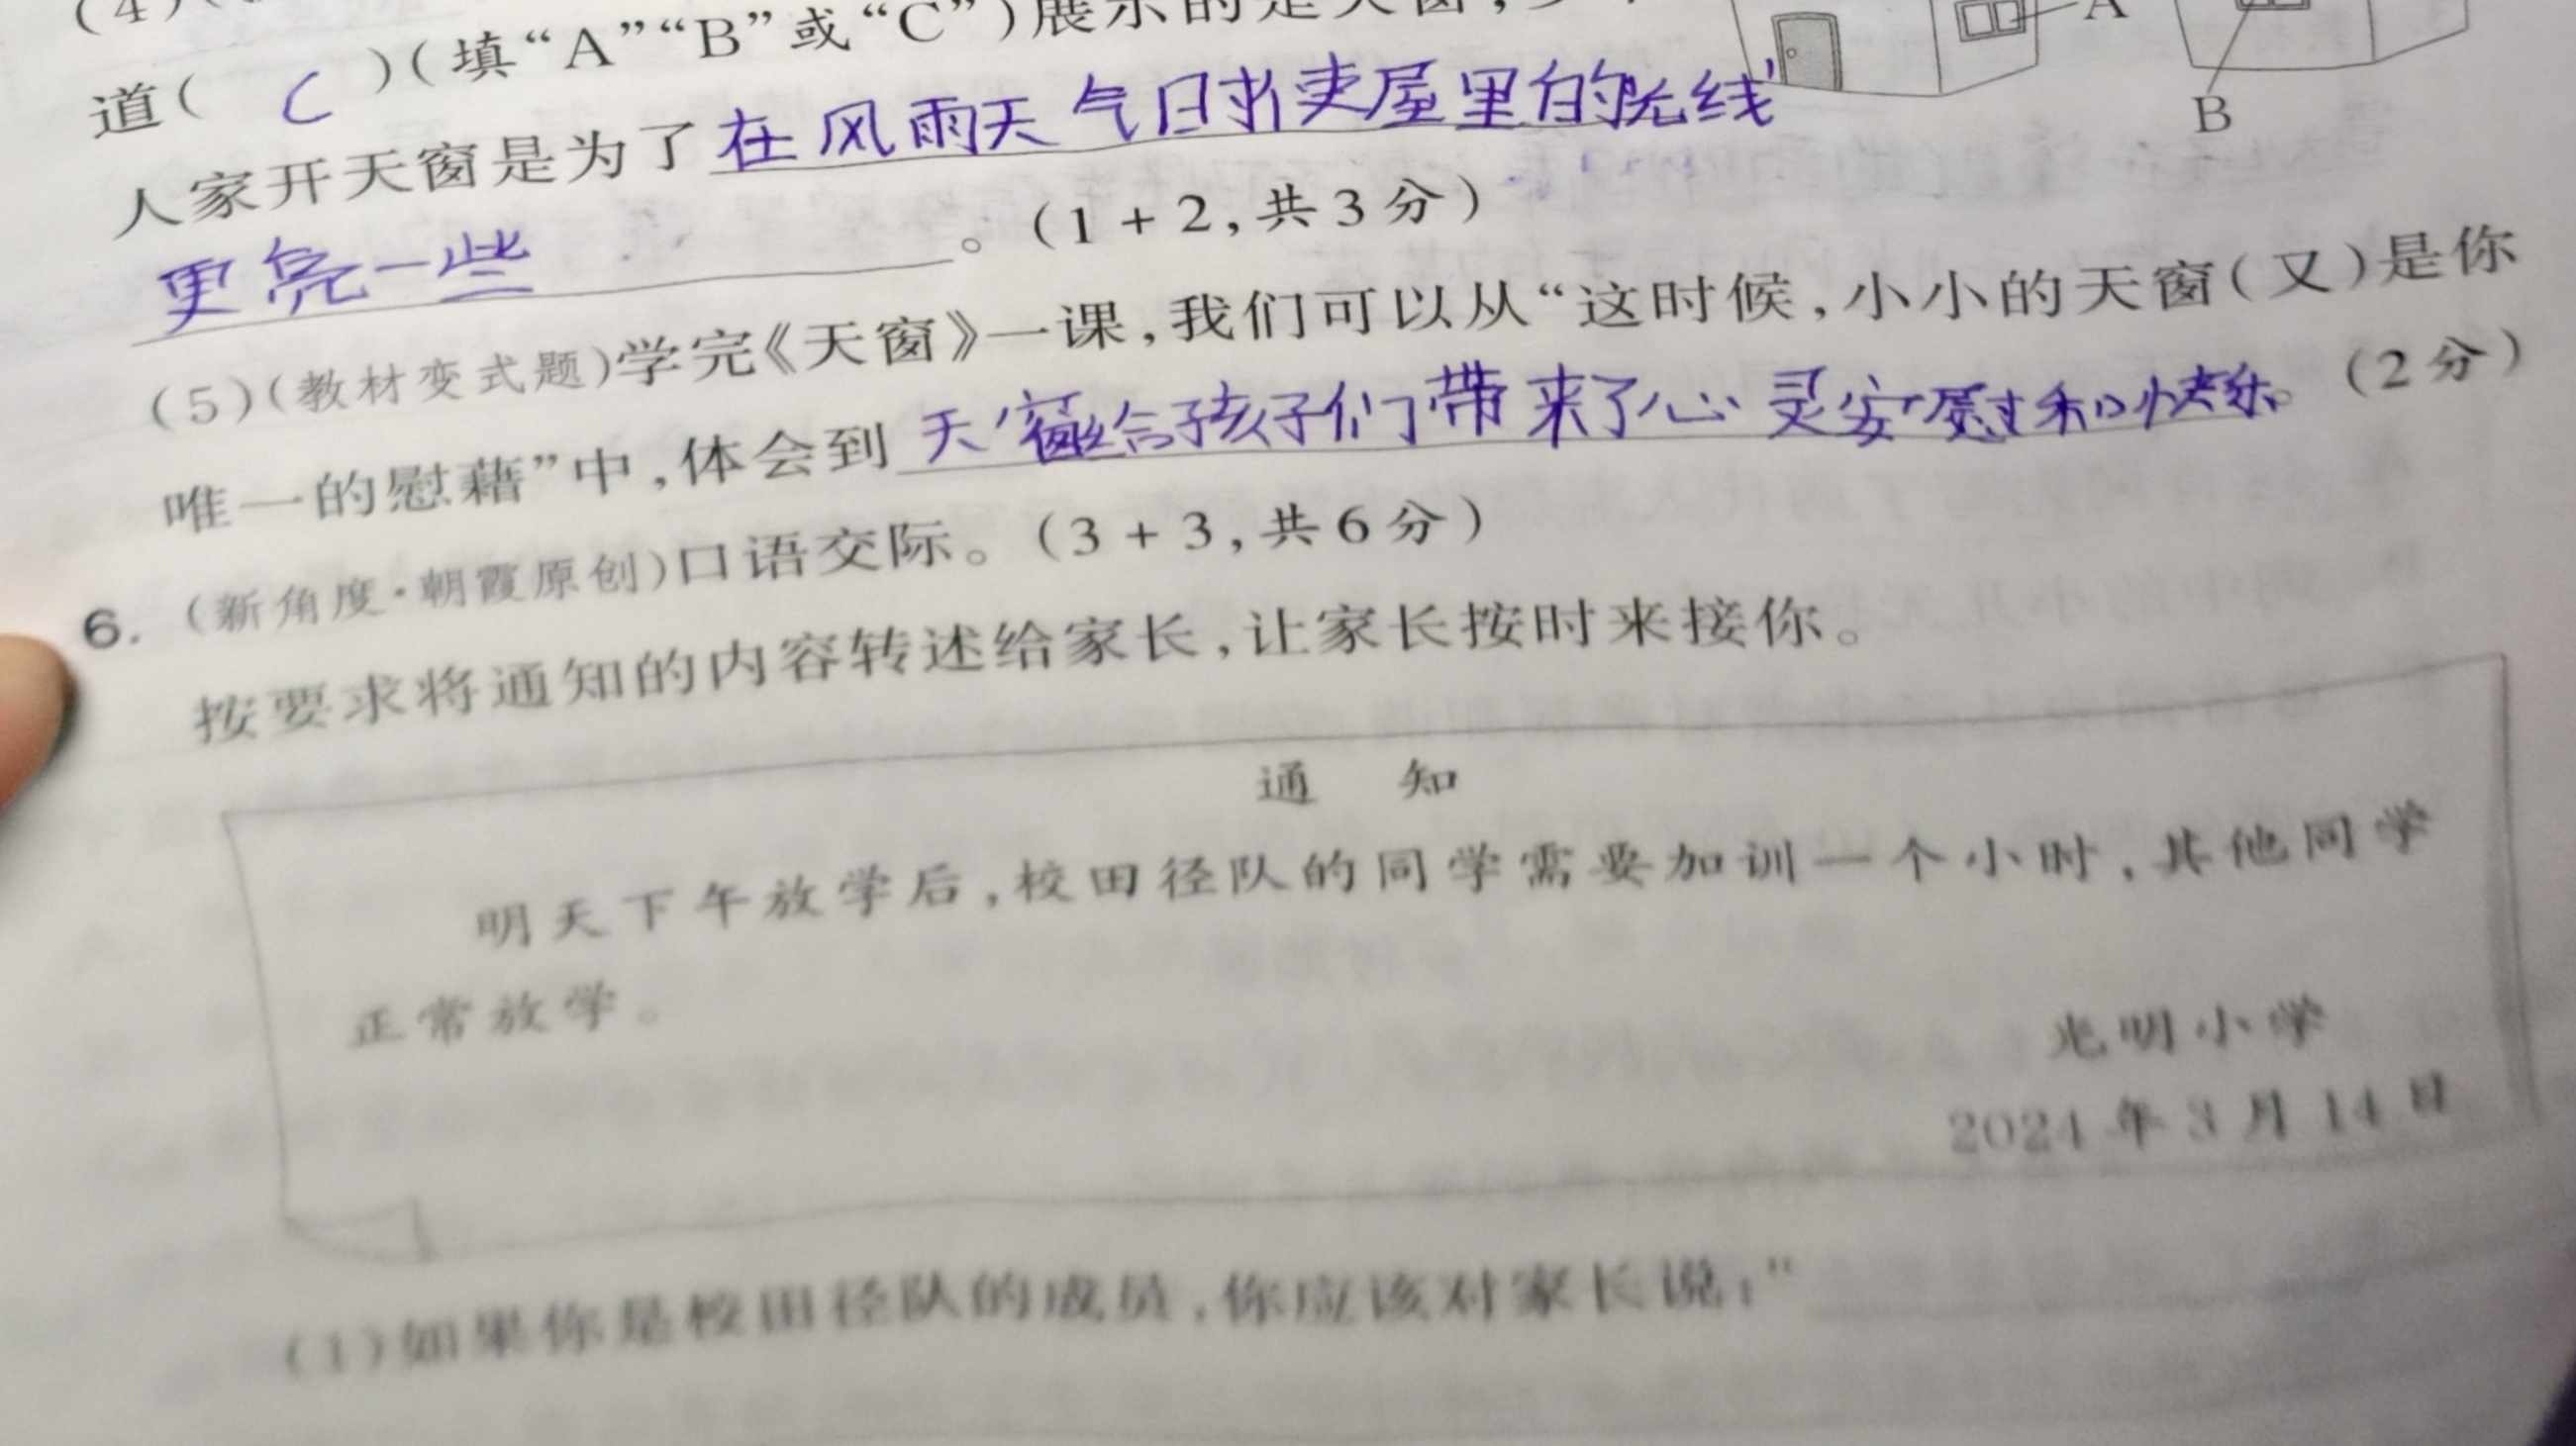 (4)
道( C )(填“A”“B”或“C”)展示的是天窗,
A
B
人家开天窗是为了在风雨天气日才使屋里的光线
更亮一些。(1+2,共3分)
(5)(教材变式题)学完《天窗》一课,我们可以从“这时候,小小的天窗(又)是你
唯一的慰藉”中,体会到天窗给孩子们带来了心灵安慰和快乐。(2分)
6.(新角度·朝霞原创)口语交际。(3+3,共6分)
按要求将通知的内容转述给家长,让家长按时来接你。
通 知
明天下午放学后,校田径队的同学需要加训一个小时,其他同学
正常放学。
光明小学
2024年3月14日
(1)如果你是校田径队的成员,你应该对家长说:“